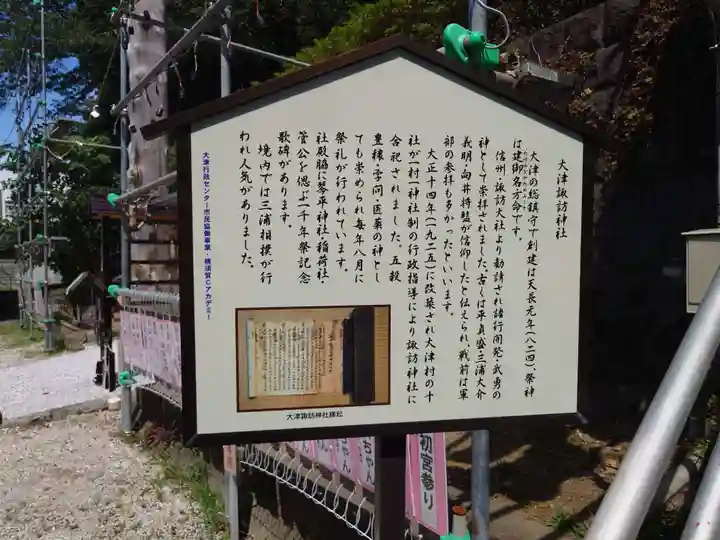 大津諏訪神社
大津の総鎮守で創建は天長元年（八二四）、祭神
は建御名方命です。
たけみなかたのみこと
信州・諏訪大社より勧請され諸行開発・武勇の
神として崇拝されました。古くは平真盛・三浦大介
義明・向井将監が信仰したと伝えられ、戦前は軍
部の参拝も多かったといいます。
大正十四年（一九二五）に改築され大津村の十
社が一村一神社制の行政指導により諏訪神社に
合祀されました。五穀
豊穣・学問・医薬の神とし
ても崇められ毎年八月に
祭礼が行われています。
社殿脇に琴平神社・稲荷社・
菅公を偲ぶ一千年祭記念
歌碑があります。
境内では三浦相撲が行
われ人気がありました。
大津行政センター市民協働事業・横須賀Cアカデミー
大津諏訪神社縁起
初宮参り
ちゃん
ちゃん